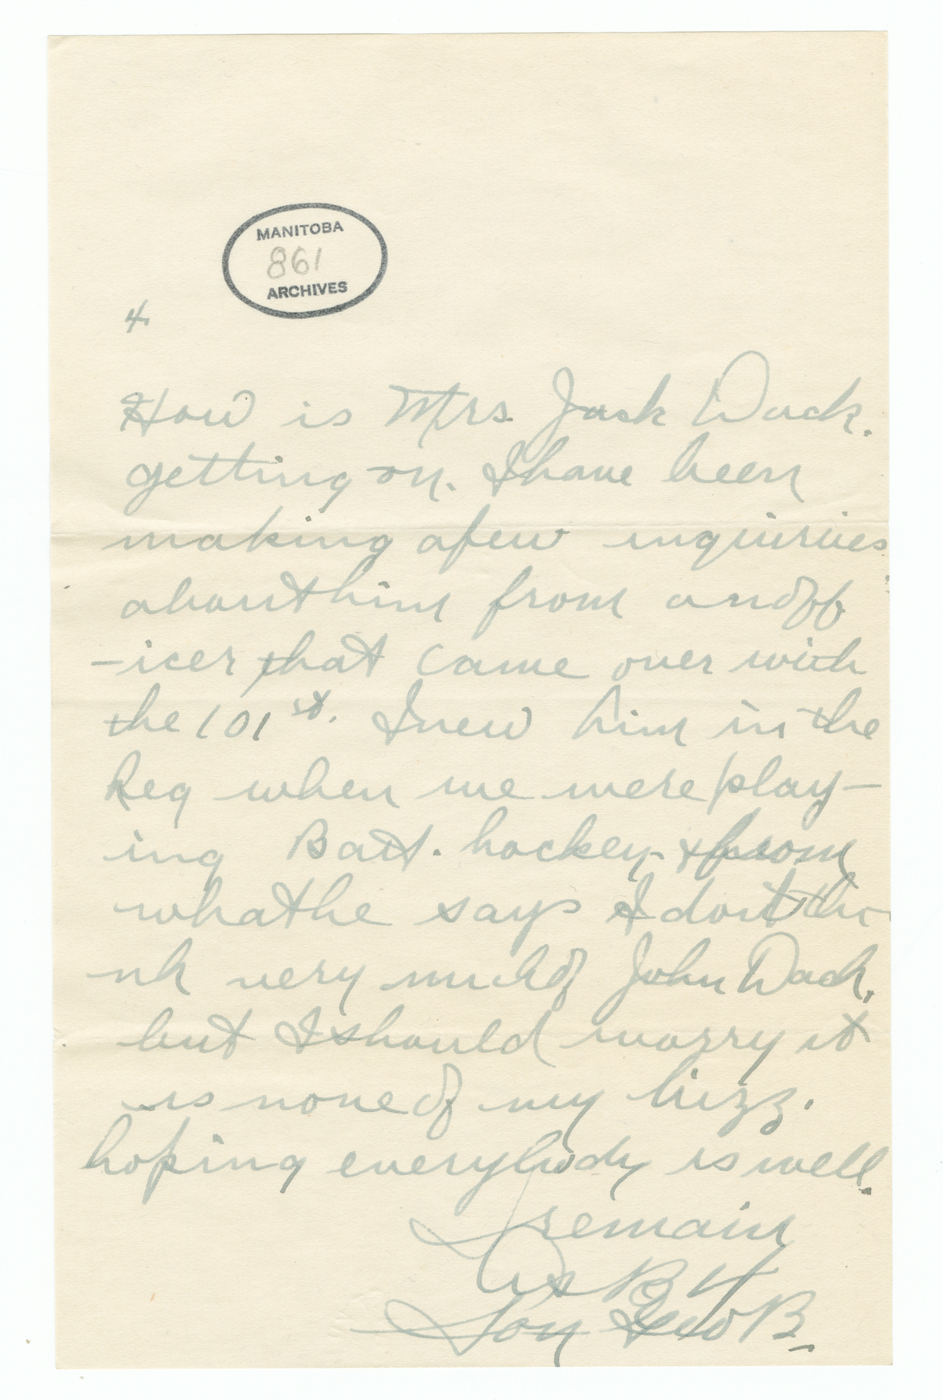 MANITOBA
861
ARCHIVES
4.
How is Mrs. Jack Dack.
getting on. I have been
making a few inquiries
about him from an off
-icer that came over with
the 101st. I new him in the
Reg when we were play-
ing Batt. hockey & from
what he says I dont thi-
nk very much of John Dack,
but I should worry it
is none of my bizz.
hoping everybody is well.
I remain
As B 4
Son Geo B.